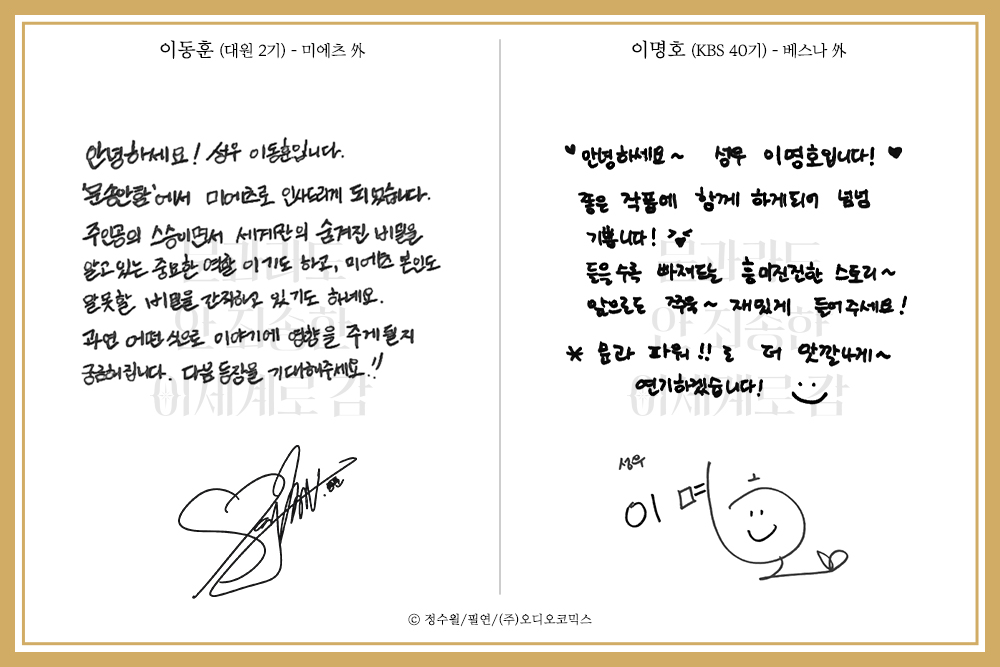 이동훈 (대원 2기) - 미에츠 外
안녕하세요! 성우 이동훈입니다.
'문송안함'에서 미에츠로 인사드리게 되었습니다.
주인공의 스승이면서 세계관의 숨겨진 비밀을
알고있는 중요한 역할이기도 하고, 미에츠 본인도
말못할 비밀을 간직하고 있기도 하네요.
과연 어떤식으로 이야기에 영향을 주게될지
궁금해집니다. 다음 등장을 기대해주세요!!
이명호 (KBS 40기) - 베스나 外
안녕하세요~ 성우 이명호입니다!
좋은 작품에 함께 하게되어 넘넘
기쁩니다!
들을수록 빠져드는 흥미진진한 스토리~
앞으로도 쭈욱~ 재밌게 들어주세요!
* 문과 파워!!로 더 맛깔나게~
연기하겠습니다!
성우
이명호
문과라도
안 죄송한
이세계로 감
문과라도
안 죄송한
이세계로 감
ⓒ 정수월/필연/(주)오디오코믹스